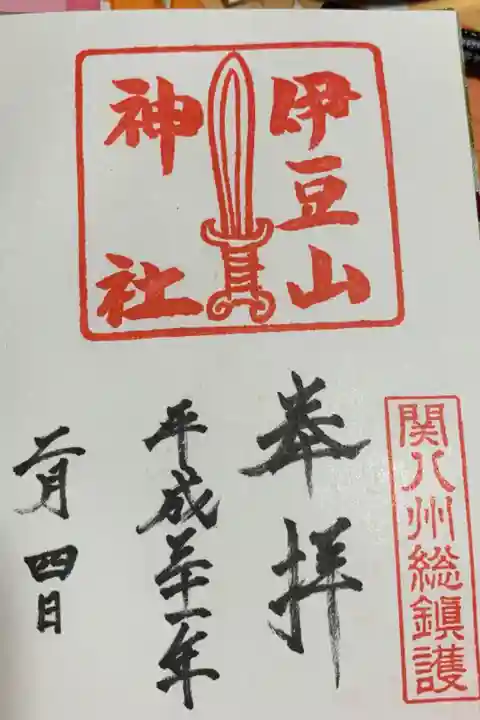 伊豆山
神社
関八州総鎮護
奉拝
平成三十一年
二月四日